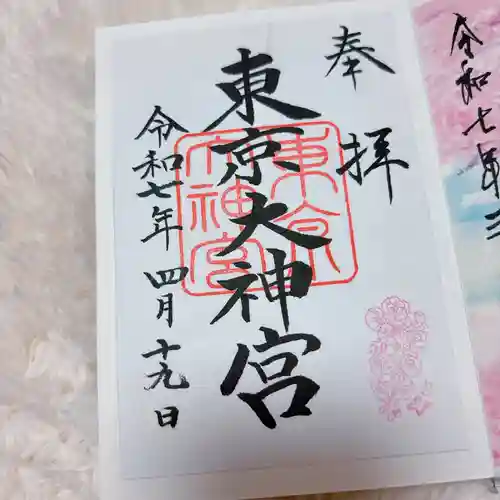 奉拝
東京大神宮
東京
大神宮
令和七年四月十九日
令和七年三